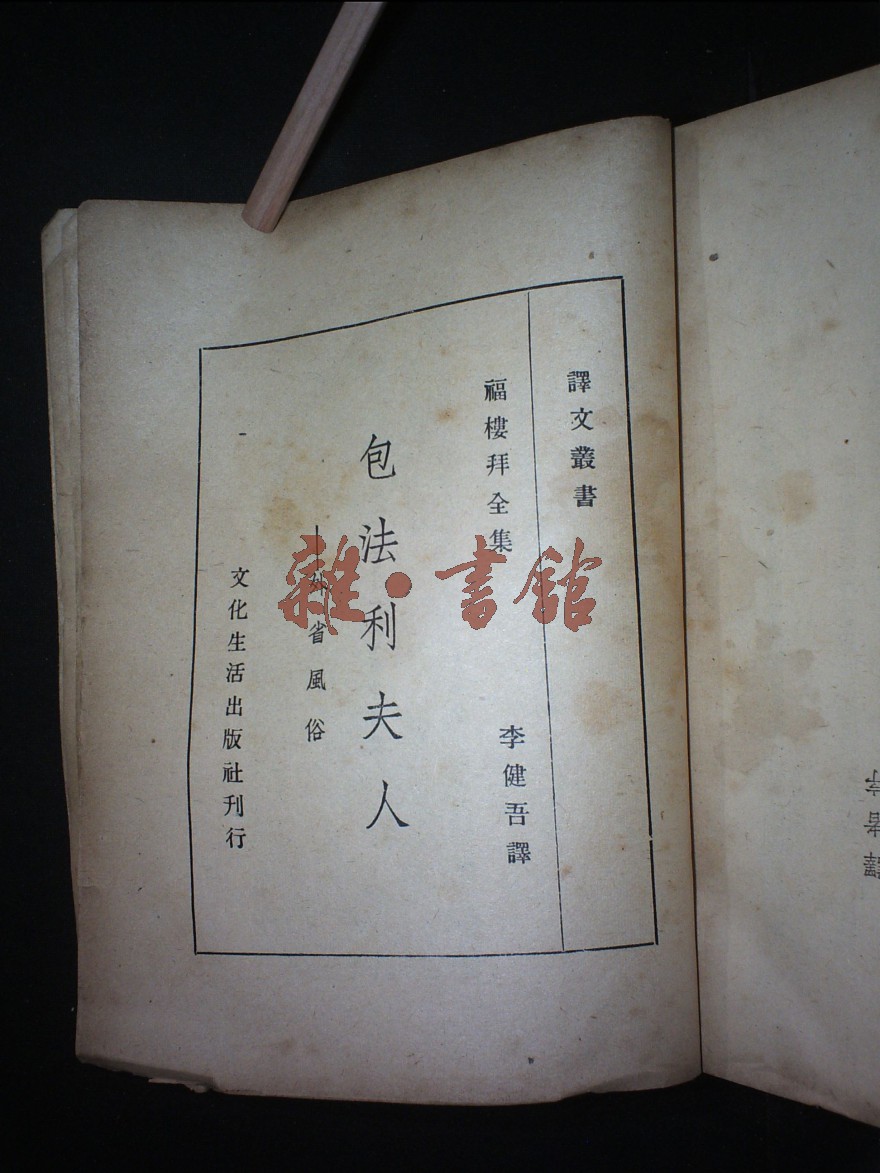 譯文叢書
福樓拜全集
李健吾譯
包法利夫人
—外省風俗
文化生活出版社刊行
雜·書館
譯者序